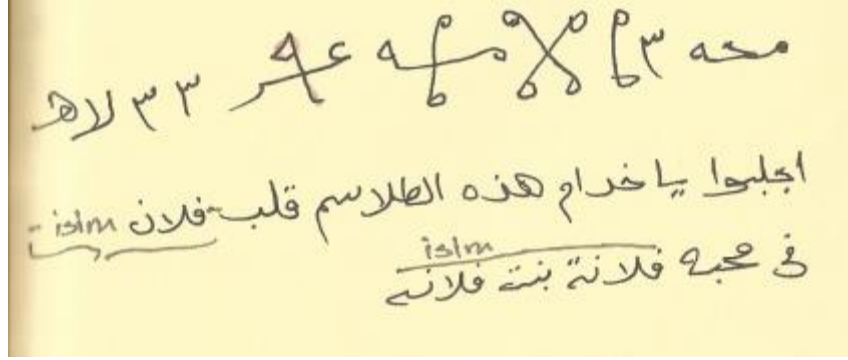 محه ٣ ٣ ٣ لاهـ
اجلبوا يا خدام هذه الطلاسم قلب فلان isim
isim
فى محبه فلانة بنت فلانه